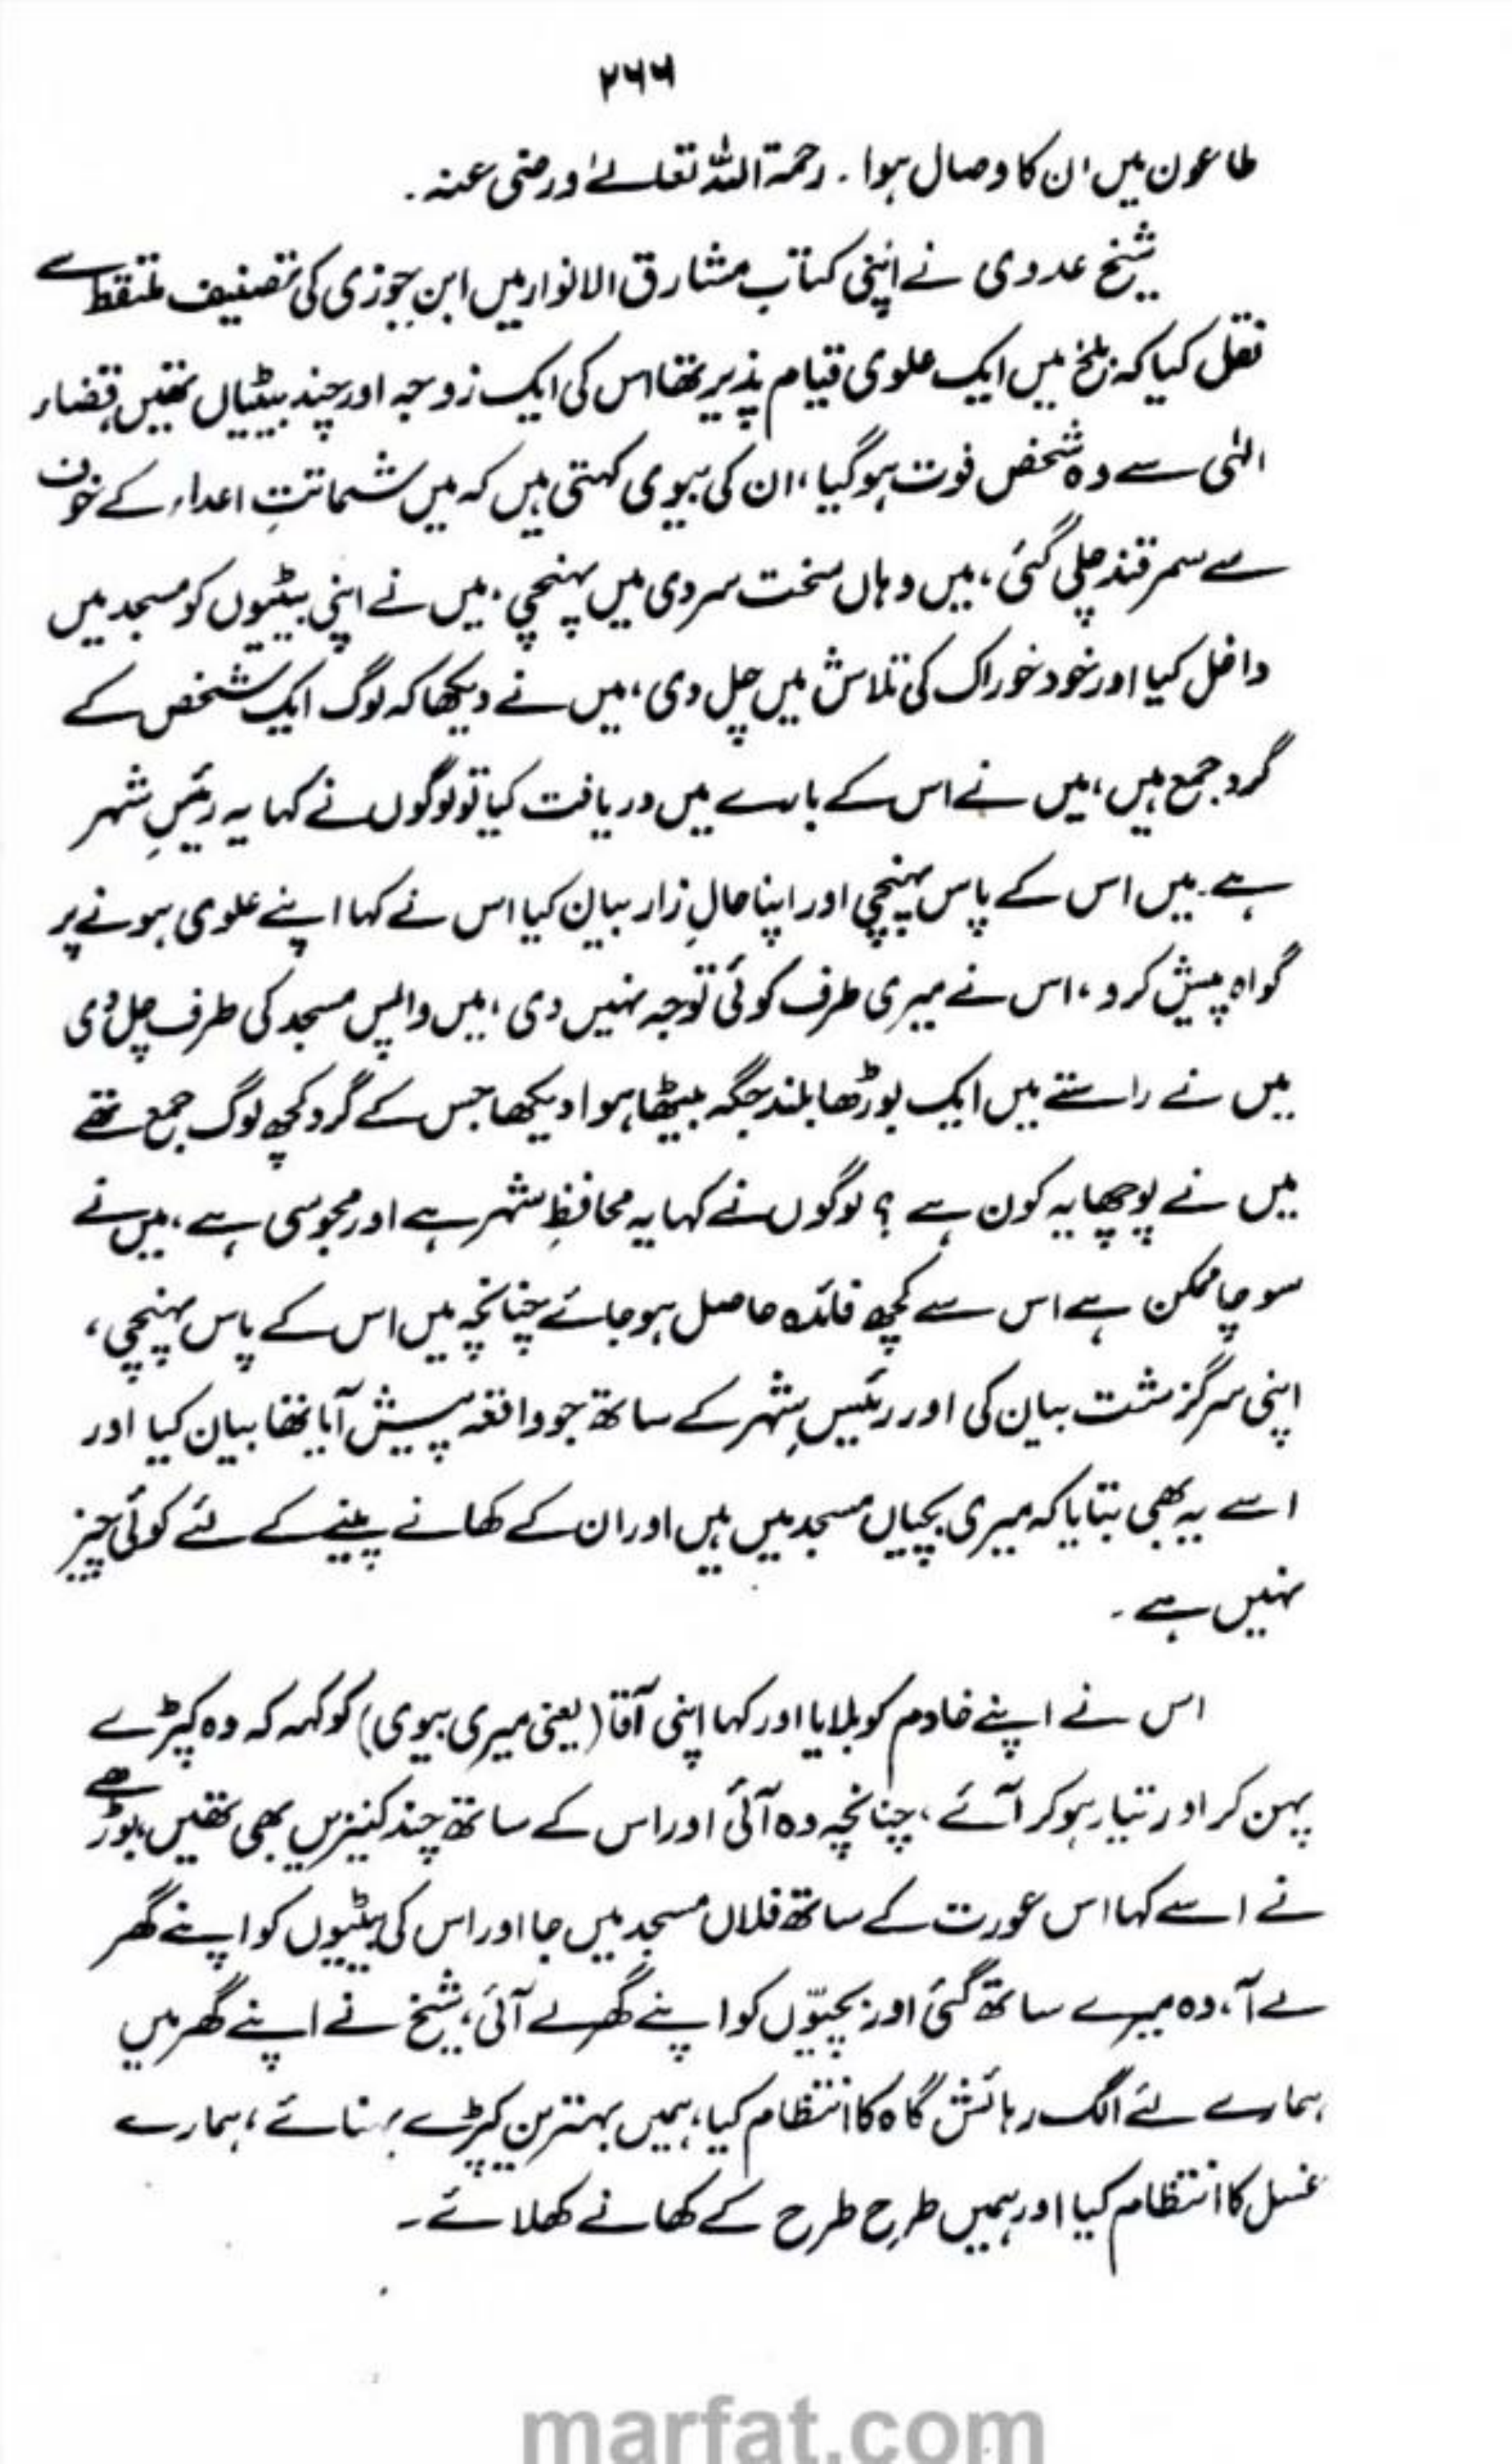 ۲۶۶
طاعون میں ان کا وصال ہوا ۔ رحمۃ اللہ تعالیٰ ورضی عنہ ۔
شیخ عدوی نے اپنی کتاب مشارق الانوار میں ابن جوزی کی تصنیف ملتقط سے
نقل کیا کہ بلخ میں ایک علوی قیام پذیر تھا اس کی ایک زوجہ اور چند بیٹیاں تھیں، قضاء
الٰہی سے وہ شخص فوت ہو گیا، ان کی بیوی کہتی ہیں کہ میں شماتتِ اعداء کے خوف
سے سمرقند چلی گئی، میں وہاں سخت سردی میں پہنچی، میں نے اپنی بیٹیوں کو مسجد میں
داخل کیا اور خود خوراک کی تلاش میں چل دی، میں نے دیکھا کہ لوگ ایک شخص کے
گرد جمع ہیں، میں نے اس کے بارے میں دریافت کیا تو لوگوں نے کہا یہ رئیسِ شہر
ہے۔ میں اس کے پاس پہنچی اور اپنا حالِ زار بیان کیا اس نے کہا اپنے علوی ہونے پر
گواہ پیش کرو، اس نے میری طرف کوئی توجہ نہیں دی، میں واپس مسجد کی طرف چل دی
میں نے راستے میں ایک بوڑھا بلند جگہ بیٹھا ہوا دیکھا جس کے گرد کچھ لوگ جمع تھے
میں نے پوچھا یہ کون ہے ؟ لوگوں نے کہا یہ محافظِ شہر ہے اور مجوسی ہے، میں نے
سوچا ممکن ہے اس سے کچھ فائدہ حاصل ہو جائے چنانچہ میں اس کے پاس پہنچی،
اپنی سرگزشت بیان کی اور رئیسِ شہر کے ساتھ جو واقعہ پیش آیا تھا بیان کیا اور
اسے یہ بھی بتایا کہ میری بچیاں مسجد میں ہیں اور ان کے کھانے پینے کے لئے کوئی چیز
نہیں ہے ۔
اس نے اپنے خادم کو بلایا اور کہا اپنی آقا (یعنی میری بیوی) کو کہہ کہ وہ کپڑے
پہن کر اور تیار ہو کر آئے، چنانچہ وہ آئی اور اس کے ساتھ چند کنیزیں بھی تھیں، بوڑھے
نے اسے کہا اس عورت کے ساتھ فلاں مسجد میں جا اور اس کی بیٹیوں کو اپنے گھر
لے آ، وہ میرے ساتھ گئی اور بچیوں کو اپنے گھر لے آئی، شیخ نے اپنے گھر میں
ہمارے لئے الگ رہائش گاہ کا انتظام کیا، ہمیں بہترین کپڑے پہنائے، ہمارے
غسل کا انتظام کیا اور ہمیں طرح طرح کے کھانے کھلائے ۔
marfat.com